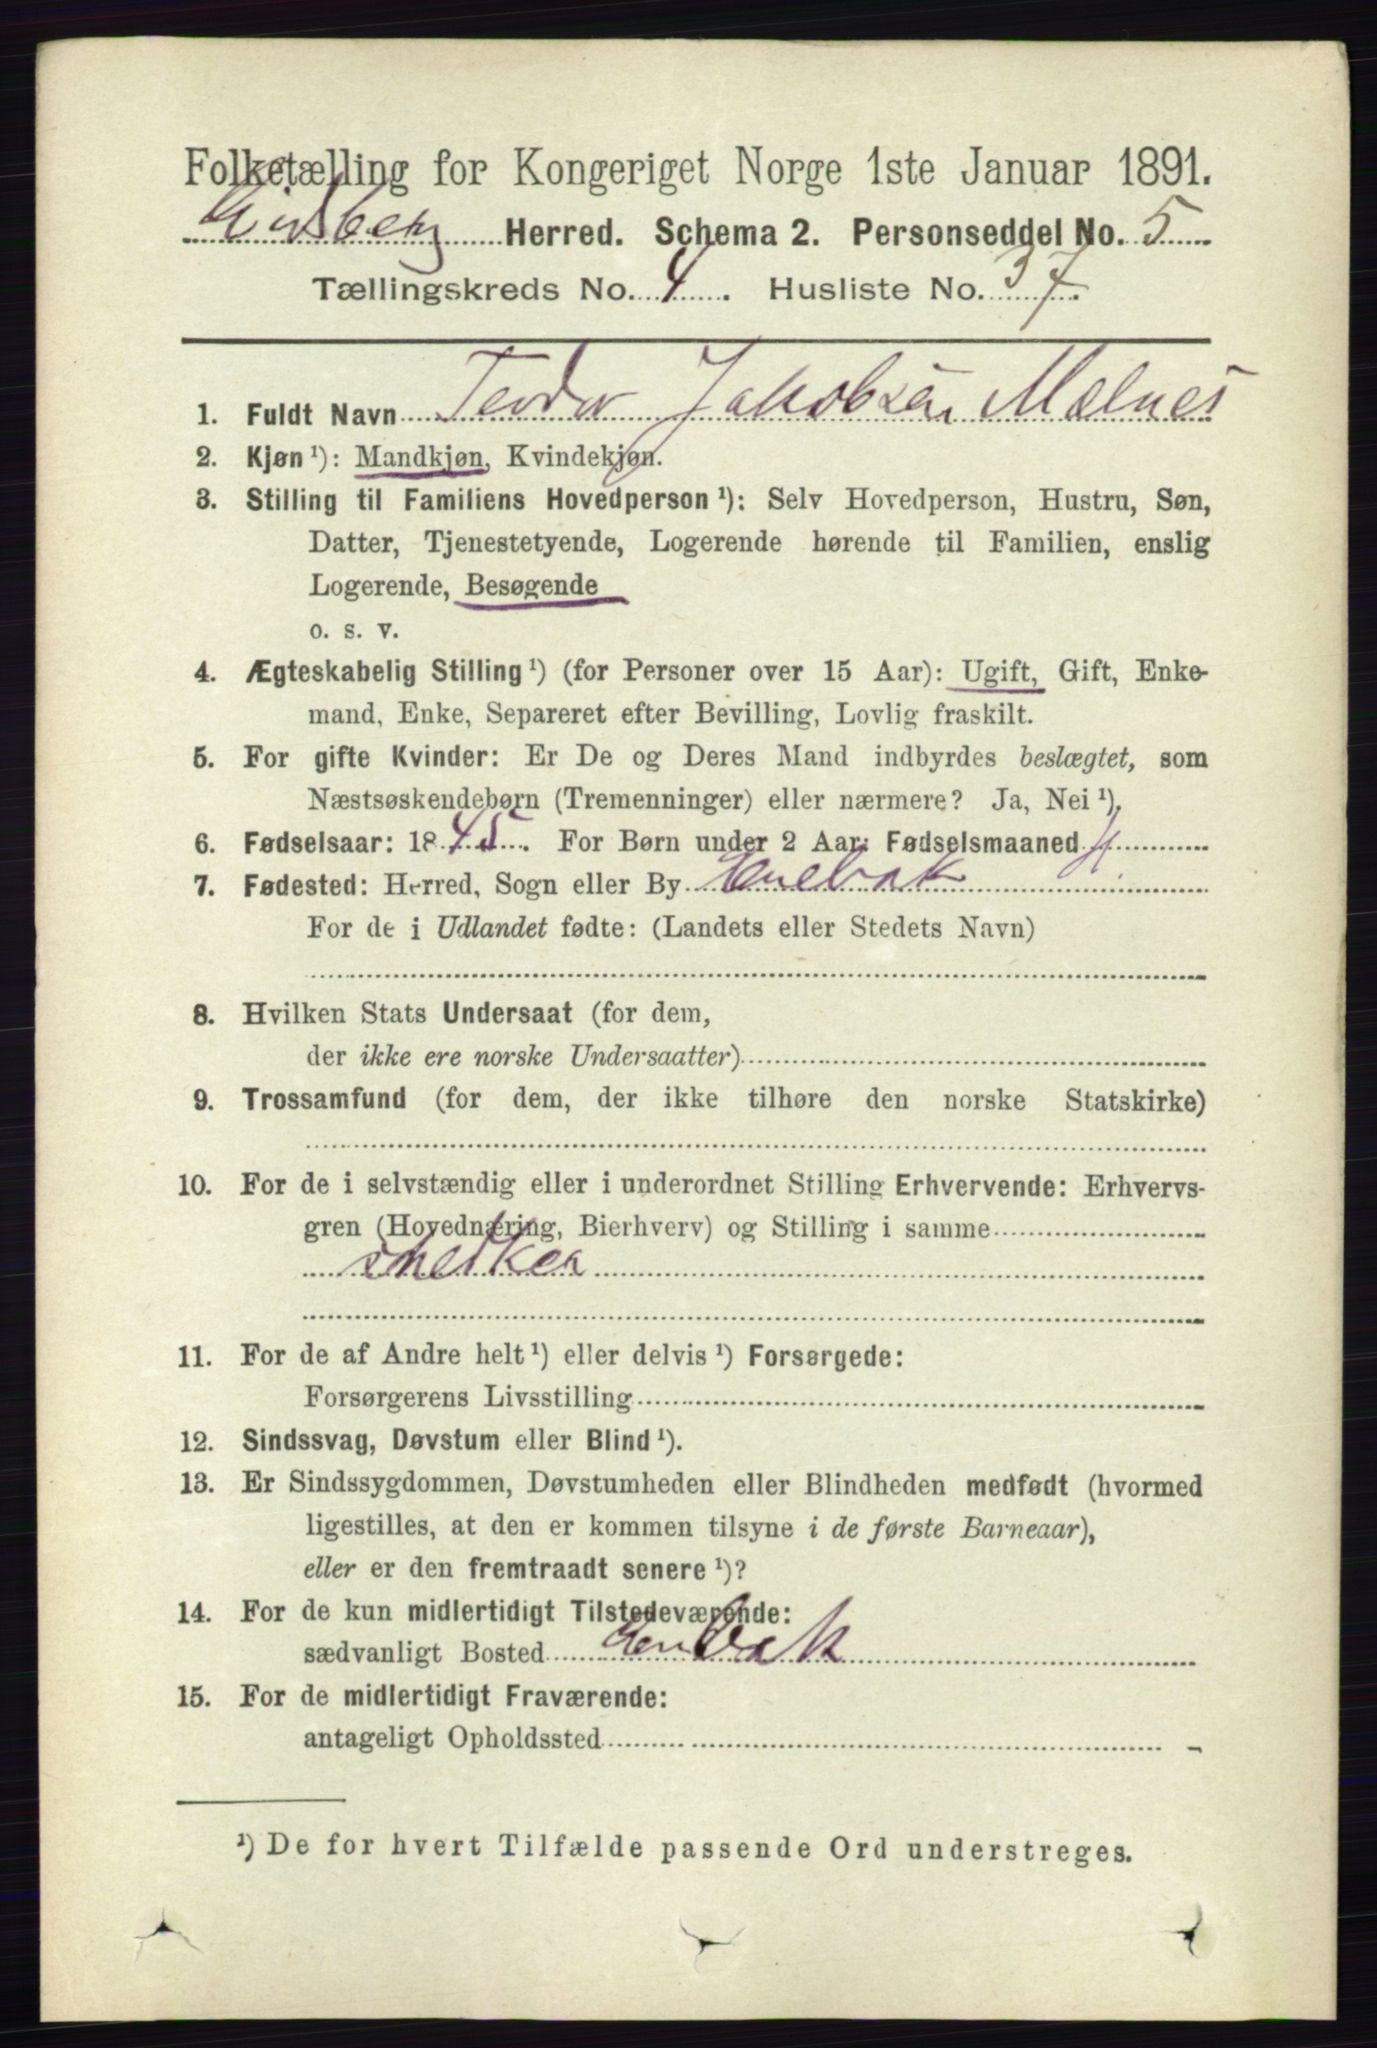 Folketælling for Kongeriget Norge 1ste Januar 1891.
Eidsberg Herred. Schema 2. Personseddel No. 5
Tællingskreds No. 4. Husliste No. 37.
1. Fuldt Navn Teodor Jakobsen Mælnes
2. Kjøn ¹): Mandkjøn, Kvindekjøn.
3. Stilling til Familiens Hovedperson ¹): Selv Hovedperson, Hustru, Søn,
Datter, Tjenestetyende, Logerende hørende til Familien, enslig
Logerende, Besøgende
o. s. v.
4. Ægteskabelig Stilling ¹) (for Personer over 15 Aar): Ugift, Gift, Enke-
mand, Enke, Separeret efter Bevilling, Lovlig fraskilt.
5. For gifte Kvinder: Er De og Deres Mand indbyrdes beslægtet, som
Næstsøskendebørn (Tremenninger) eller nærmere? Ja, Nei ¹).
6. Fødselsaar: 1845. For Børn under 2 Aar: Fødselsmaaned
7. Fødested: Herred, Sogn eller By Enebak
For de i Udlandet fødte: (Landets eller Stedets Navn)
8. Hvilken Stats Undersaat (for dem,
der ikke ere norske Undersaatter)
9. Trossamfund (for dem, der ikke tilhøre den norske Statskirke)
10. For de i selvstændig eller i underordnet Stilling Erhvervende: Erhvervs-
gren (Hovednæring, Bierhverv) og Stilling i samme
snetker
11. For de af Andre helt ¹) eller delvis ¹) Forsørgede:
Forsørgerens Livsstilling
12. Sindssvag, Døvstum eller Blind ¹).
13. Er Sindssygdommen, Døvstumheden eller Blindheden medfødt (hvormed
ligestilles, at den er kommen tilsyne i de første Barneaar),
eller er den fremtraadt senere ¹)?
14. For de kun midlertidigt Tilstedeværende:
sædvanligt Bosted Enebak
15. For de midlertidigt Fraværende:
antageligt Opholdssted
¹) De for hvert Tilfælde passende Ord understreges.